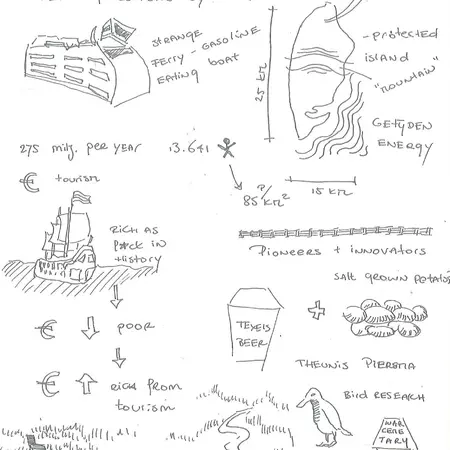 STRANGE
FERRY - GASOLINE
EATING BOAT
25 km
- PROTECTED
ISLAND
"MOUNTAIN"
GETYDEN
ENERGY
275 milj. PER YEAR
13.641
85 P/km²
15 km
€ tourism
RICH AS
IN
HISTORY
Pioneers + innovators
SALT GROWN POTATOS
TEXELS
BEER
+
€ POOR
THEUNIS PIERSMA
€ RICH FROM
tourism
Bird RESEARCH
WAR
CEME
TARY